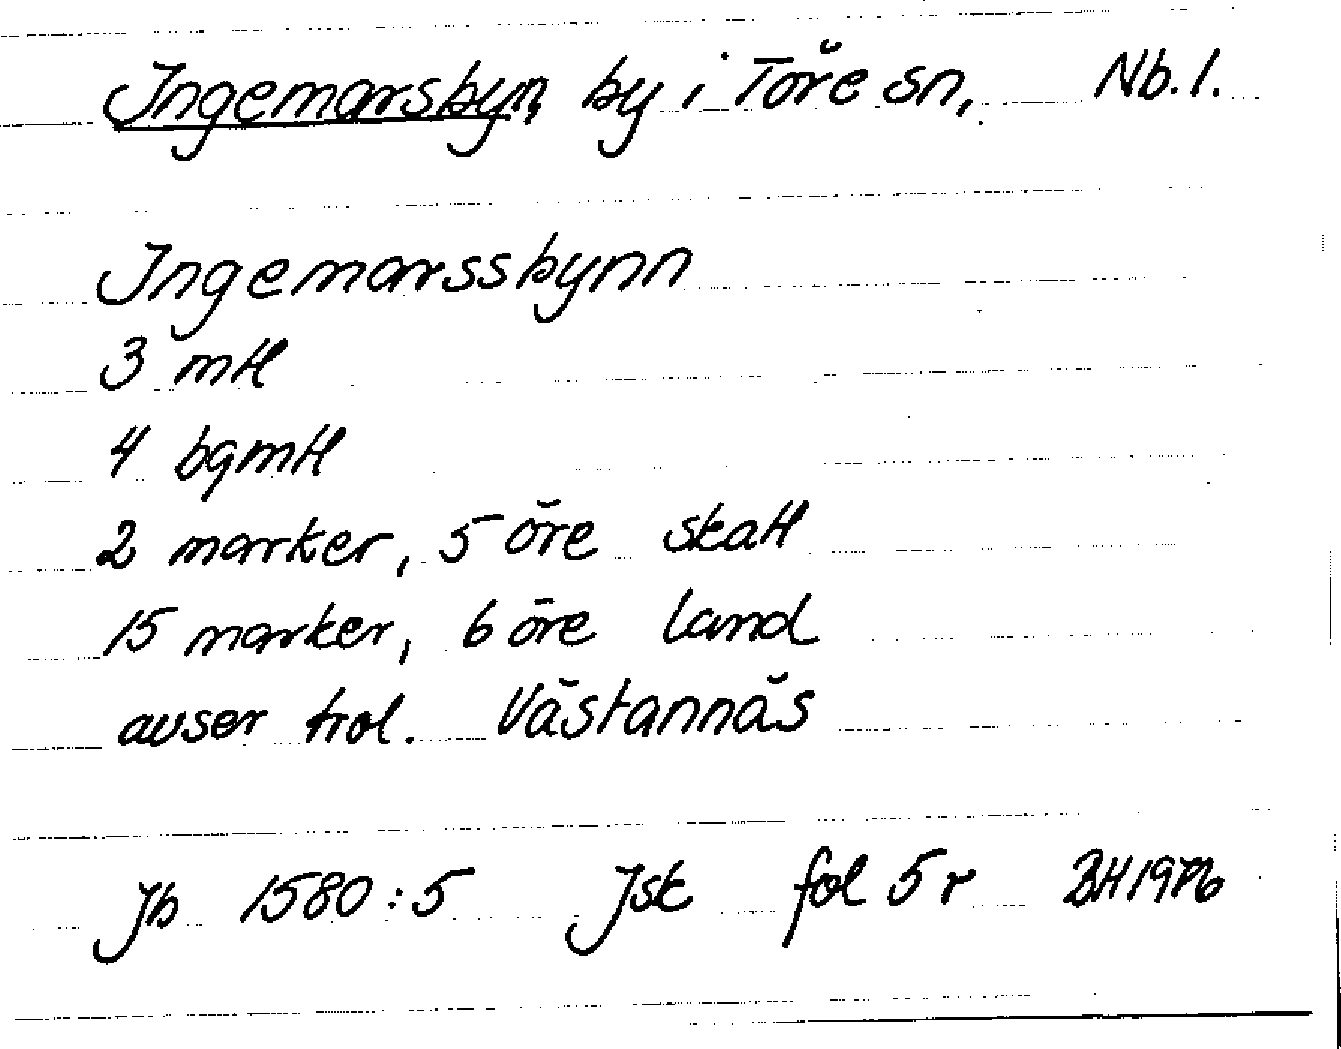 Ingemarsbyn, by i Töre sn, Nb.l.
Ingemarssbynn
3 mtl
4 bgmtl
2 marker, 5 öre skatt
15 marker, 6 öre land
avser trol. Västannäs
Jb 1580:5 Jsk fol 5 r BH 1976